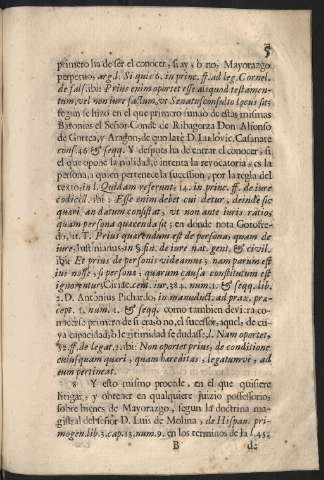 5
primero ha de ser el conocer, si ay, ò no, Mayorazgo
perpetuo, arg. l. Si quis 6. in princ. ff. ad leg. Cornel.
de fals. ibi: Prius enim oportet esse aliquod testamen-
tum, vel non iure factum, vt Senatusconsulto locus sit;
segun se hizo en el que primero fundò de estas mismas
Baronias el Señor Conde de Ribagorza Don Alfonso
de Gurrea, y Aragon; de quo latè D. Ludovic. Casanate
cons. 46. & seqq. Y despues ha de entrar el conocer, si
el que opone la nulidad, è intenta la revocatoria, es la
persona, a quien pertenece la sucession, por la regla del
texto in l. Quidam referunt, 14. in princ. ff. de iure
codicill. ibi: Esse enim debet cui detur, deinde sic
quæri, an datum consistat, vt non ante iuris ratio,
quam persona quærenda sit; en donde nota Gotofre-
do, lit. T. Prius quærendum est de persona, quam de
iure, Iustinianus in §. fin. de iure nat. gent. & civil.
ibi: Et prius de personis videamus; nam parum est
ius nosse, si personæ, quarum causa constitutum est
ignorentur, Cyriac. cont. iur. 384. num. 1. & seqq. lib.
2. D. Antonius Pichardo, in manuduct. ad prax. præ-
cept. 5. num. 1. & seqq. como tambien deviera co-
nocerse primero de si era, ò no, el sucessor, aquel, de cu-
ya capacidad, ò legitimidad se dudasse, l. Nam oportet,
52. ff. de legat. 2. ibi: Non oportet prius, de conditione
cuiusquam quæri, quam hæreditas, legatumve, ad
eum pertineat.
8 Y esto mismo procede, en el que quisiere
litigar, y obtener en qualquiere juizio possessorio
sobre bienes de Mayorazgo, segun la doctrina ma-
gistral del señor D. Luis de Molina, de Hispan. pri-
mogen. lib. 3. cap. 13. num. 9. en los terminos de la l. 45.
B de